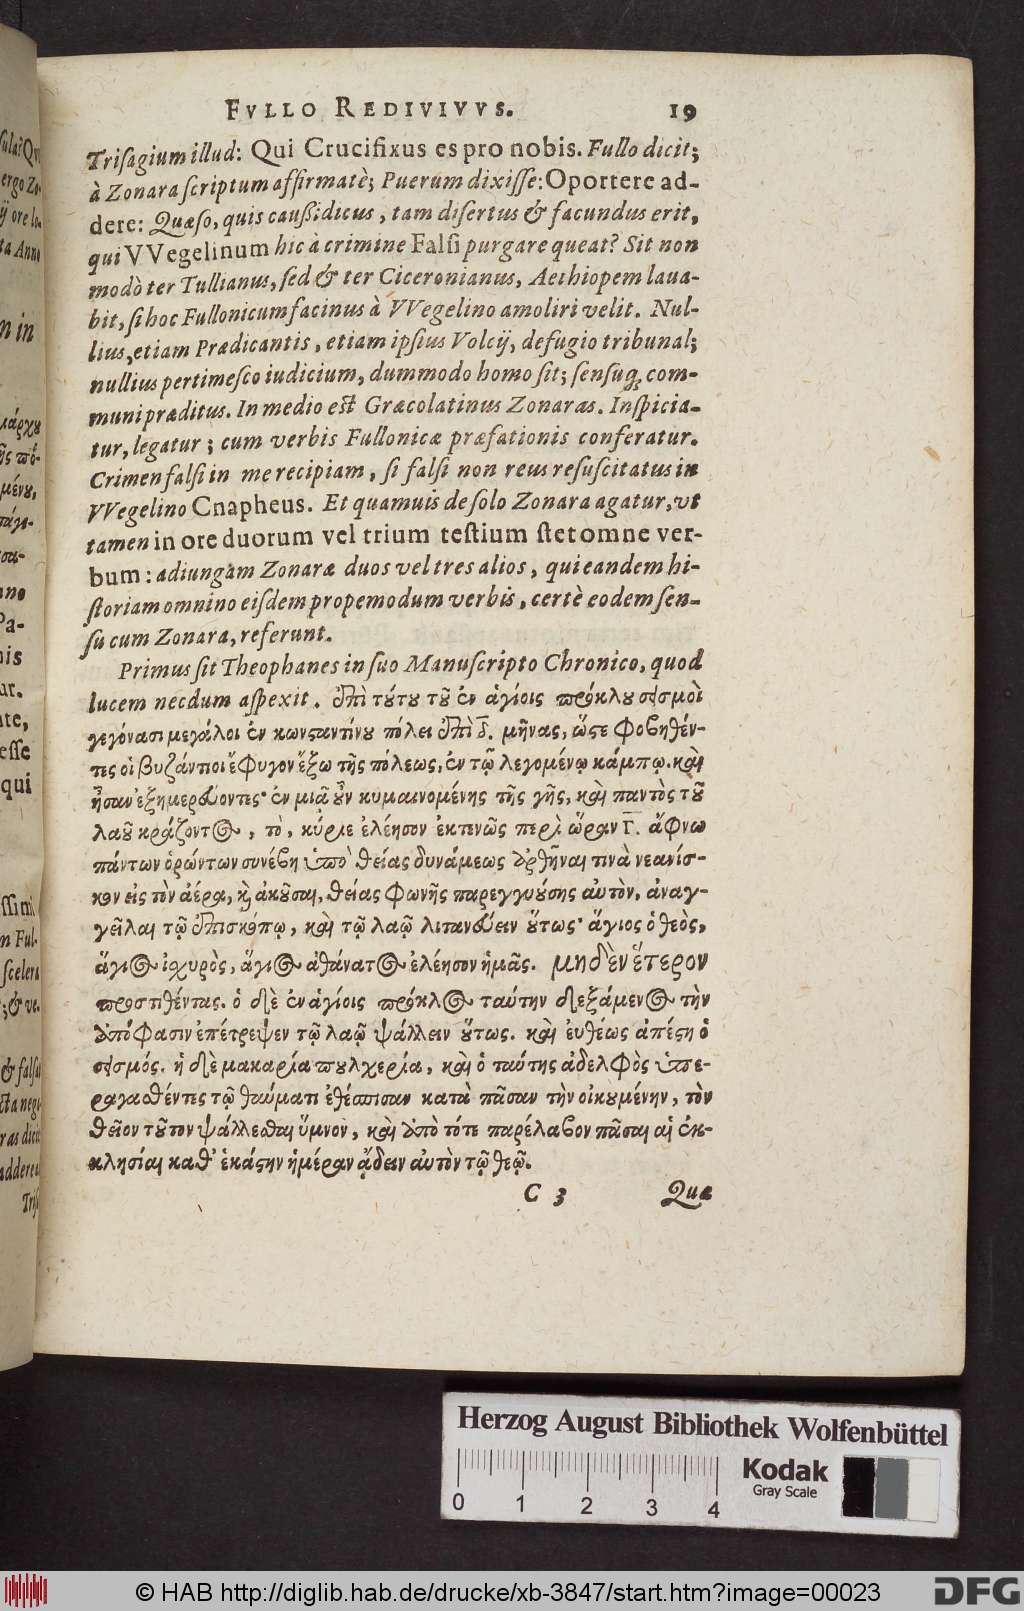 FVLLO REDIVIVVS. 19
Trisagium illud: Qui Crucifixus es pro nobis. Fullo dicit;
à Zonara scriptum affirmatè; Puerum dixisse: Oportere ad-
dere: Quæso, quis caussidicus, tam disertus & facundus erit,
qui VVegelinum hic à crimine Falsi purgare queat? Sit non
modò ter Tullianus, sed & ter Ciceronianus, Aethiopem laua-
bit, si hoc Fullonicum facinus à VVegelino amoliri velit. Nul-
lius, etiam Prædicantis, etiam ipsius Volcij, defugio tribunal;
nullius pertimesco iudicium, dummodo homo sit; sensuq́; com-
muni præditus. In medio est Græcolatinus Zonaras. Inspicia-
tur, legatur; cum verbis Fullonicæ præfationis conferatur.
Crimen falsi in me recipiam, si falsi non reus resuscitatus in
VVegelino Cnapheus. Et quamuis de solo Zonara agatur, vt
tamen in ore duorum vel trium testium stet omne ver-
bum: adiungam Zonaræ duos vel tres alios, qui eandem hi-
storiam omnino eisdem propemodum verbis, certè eodem sen-
su cum Zonara, referunt.
Primus sit Theophanes in suo Manuscripto Chronico, quod
lucem necdum aspexit. ἐπὶ τούτου τοῦ ἐν ἁγίοις πρόκλου σεισμοὶ
γεγόνασι μεγάλοι ἐν κωνσταντίνου πόλει ἐπὶ δ̅. μῆνας, ὥστε φοβηθέν-
τες οἱ βυζάντιοι ἔφυγον ἔξω τῆς πόλεως, ἐν τῷ λεγομένῳ κάμπῳ. καὶ
ἦσαν ἐξημερεύοντες· ἐν μιᾷ οὖν κυμαινομένης τῆς γῆς, καὶ παντὸς τοῦ
λαοῦ κράζοντος, τὸ, κύριε ἐλέησον ἐκτενῶς περὶ ὥραν γ̅. ἄφνω
πάντων ὁρώντων συνέβη ὑπὸ θείας δυνάμεως ἀρθῆναι τινὰ νεανίσ-
κον εἰς τὸν ἀέρα, καὶ ἀκοῦσαι, θείας φωνῆς παρεγγυούσης αὐτὸν, ἀναγ-
γεῖλαι τῷ ἐπισκόπῳ, καὶ τῷ λαῷ λιτανεύειν οὕτως· ἅγιος ὁ θεὸς,
ἅγιος ἰχυρὸς, ἅγιος ἀθάνατος ἐλέησον ἡμᾶς. μηδὲν ἕτερον
προστιθέντας. ὁ δὲ ἐν ἁγίοις πρόκλος ταύτην δεξάμενος τὴν
ἀπόφασιν ἐπέτρεψεν τῷ λαῷ ψάλλειν οὕτως. καὶ εὐθέως ἀπέστη ὁ
σεισμός. ἡ δὲ μακαρία πουλχερία, καὶ ὁ ταύτης ἀδελφὸς ὑπε-
ραγαθέντες τῷ θαύματι ἐθέσπισαν κατὰ πᾶσαν τὴν οἰκουμένην, τὸν
θεῖον τοῦτον ψάλλεσθαι ὕμνον, καὶ ἀπὸ τότε παρέλαβον πᾶσαι αἱ ἐκ-
κλησίαι καθ᾽ ἑκάστην ἡμέραν ᾄδειν αὐτὸν τῷ θεῷ.
C 3 Quæ
Herzog August Bibliothek Wolfenbüttel
Kodak
Gray Scale
0 1 2 3 4
© HAB http://diglib.hab.de/drucke/xb-3847/start.htm?image=00023
DFG